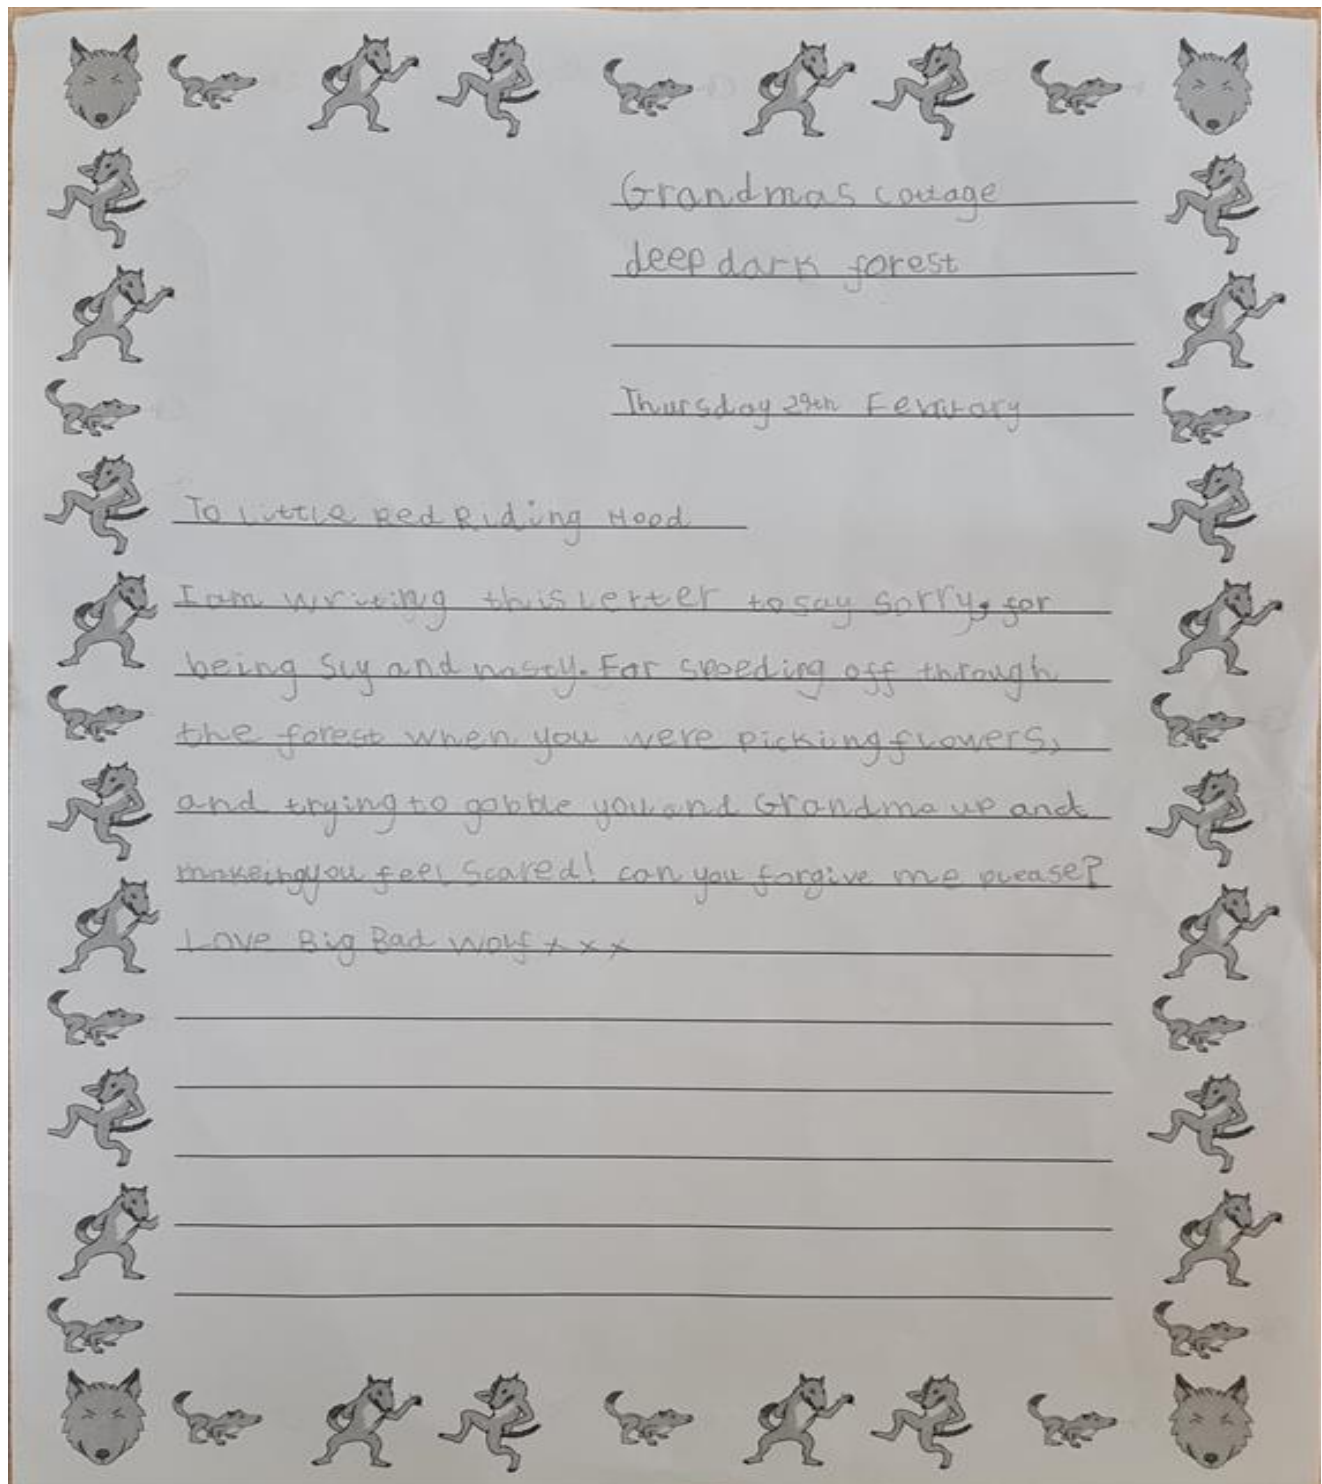 Grandmas cottage
deep dark forest
Thursday 29th Feruary
To Little Red Riding Hood
I am writing this letter to say sorry, for
being sly and nasty. For speeding off through
the forest when you were picking flowers,
and trying to gobble you and Grandma up and
makeing you feel scared! can you forgive me please?
Love Big Bad Wolf x x x